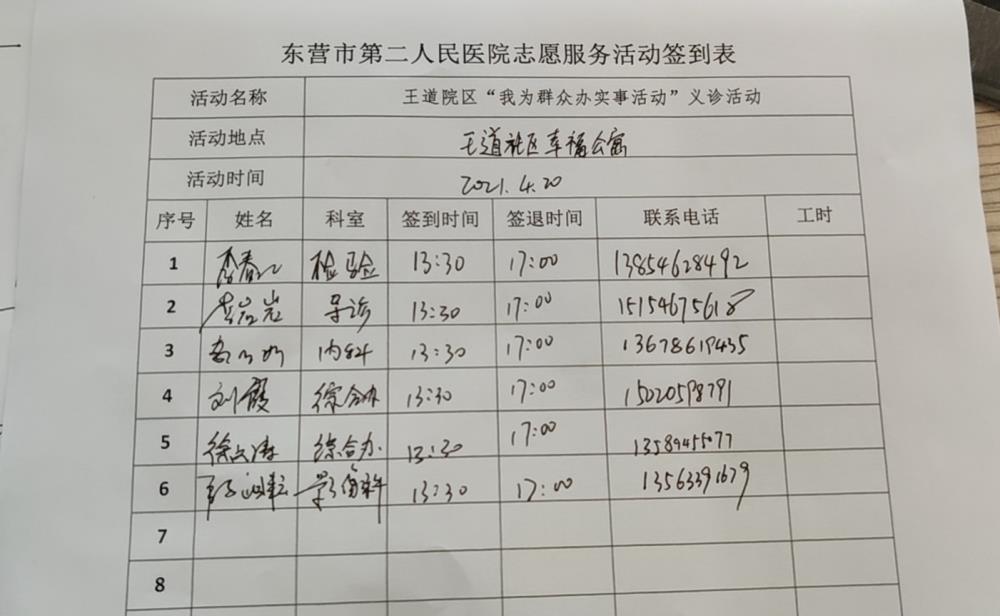 东营市第二人民医院志愿服务活动签到表
活动名称 王道院区“我为群众办实事活动”义诊活动
活动地点 王道社区幸福公寓
活动时间 2021.4.20
序号 姓名 科室 签到时间 签退时间 联系电话 工时
1 检验 13:30 17:00 13854628492
2 李岩岩 导诊 13:30 17:00 15154675618
3 内科 13:30 17:00 13678619435
4 刘霞 综合办 13:30 17:00 15020598791
5 综合办 13:30 17:00 13589455077
6 影像科 13:30 17:00 13563391679
7
8